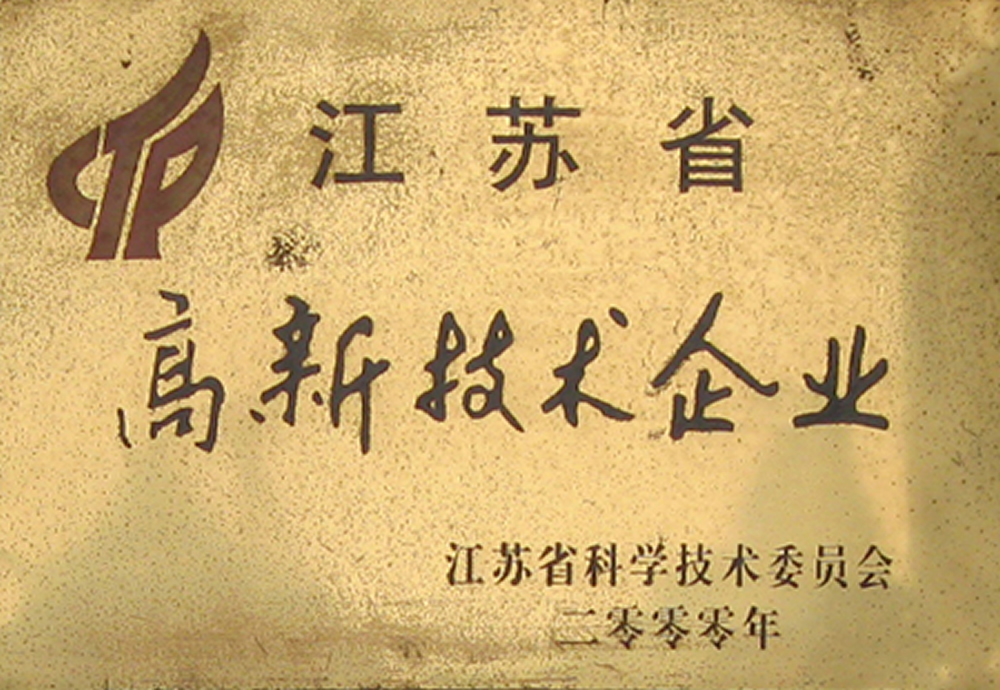 江苏省
高新技术企业
江苏省科学技术委员会
二零零零年